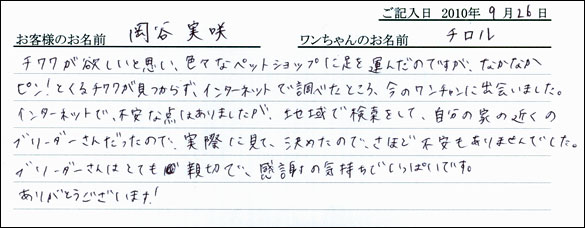 ご記入日 2010年9月26日
お客様のお名前 岡谷実咲 ワンちゃんのお名前 チロル
チワワが欲しいと思い、色々なペットショップに足を運んだのですが、なかなか
ピン!とくるチワワが見つからず、インターネットで調べたところ、今のワンチャンに出会いました。
インターネットで、不安な点はありましたが、地域で検索をして、自分の家の近くの
ブリーダーさんだったので、実際に見て、決めたので、さほど不安もありませんでした。
ブリーダーさんはとても親切で、感謝の気持ちでいっぱいです。
ありがとうございます!